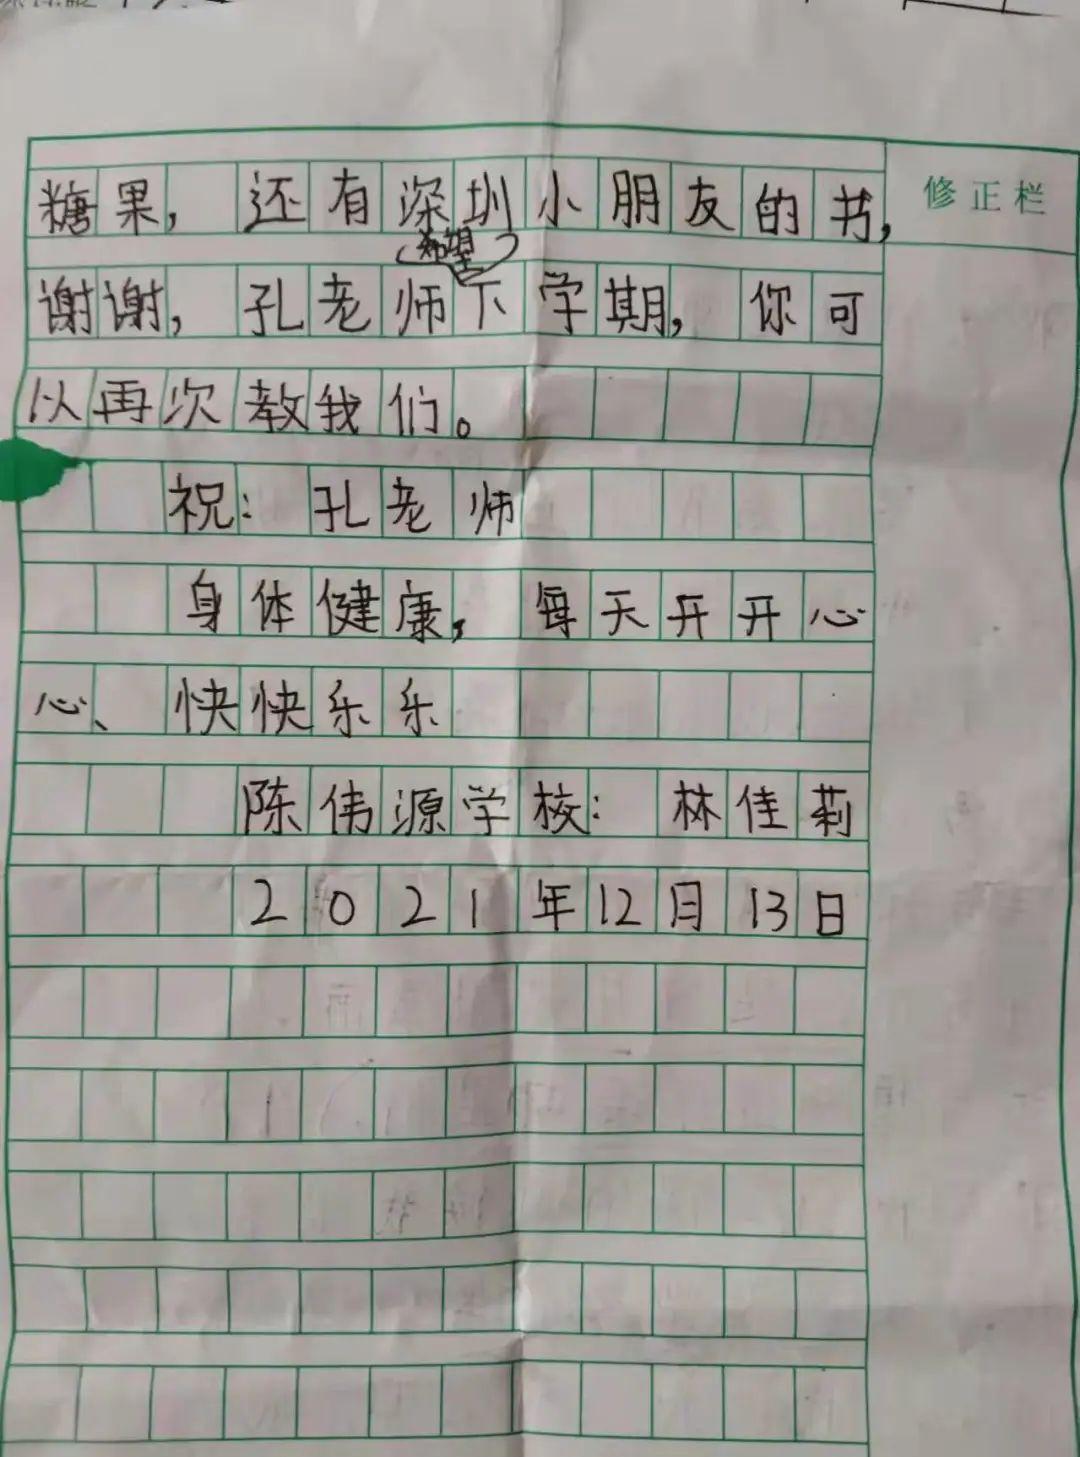 糖果，还有深圳小朋友的书，
修正栏
希望
谢谢，孔老师下学期，你可
以再次教我们。
祝：孔老师
身体健康，每天开开心
心、快快乐乐
陈伟源学校：林佳莉
2021年12月13日